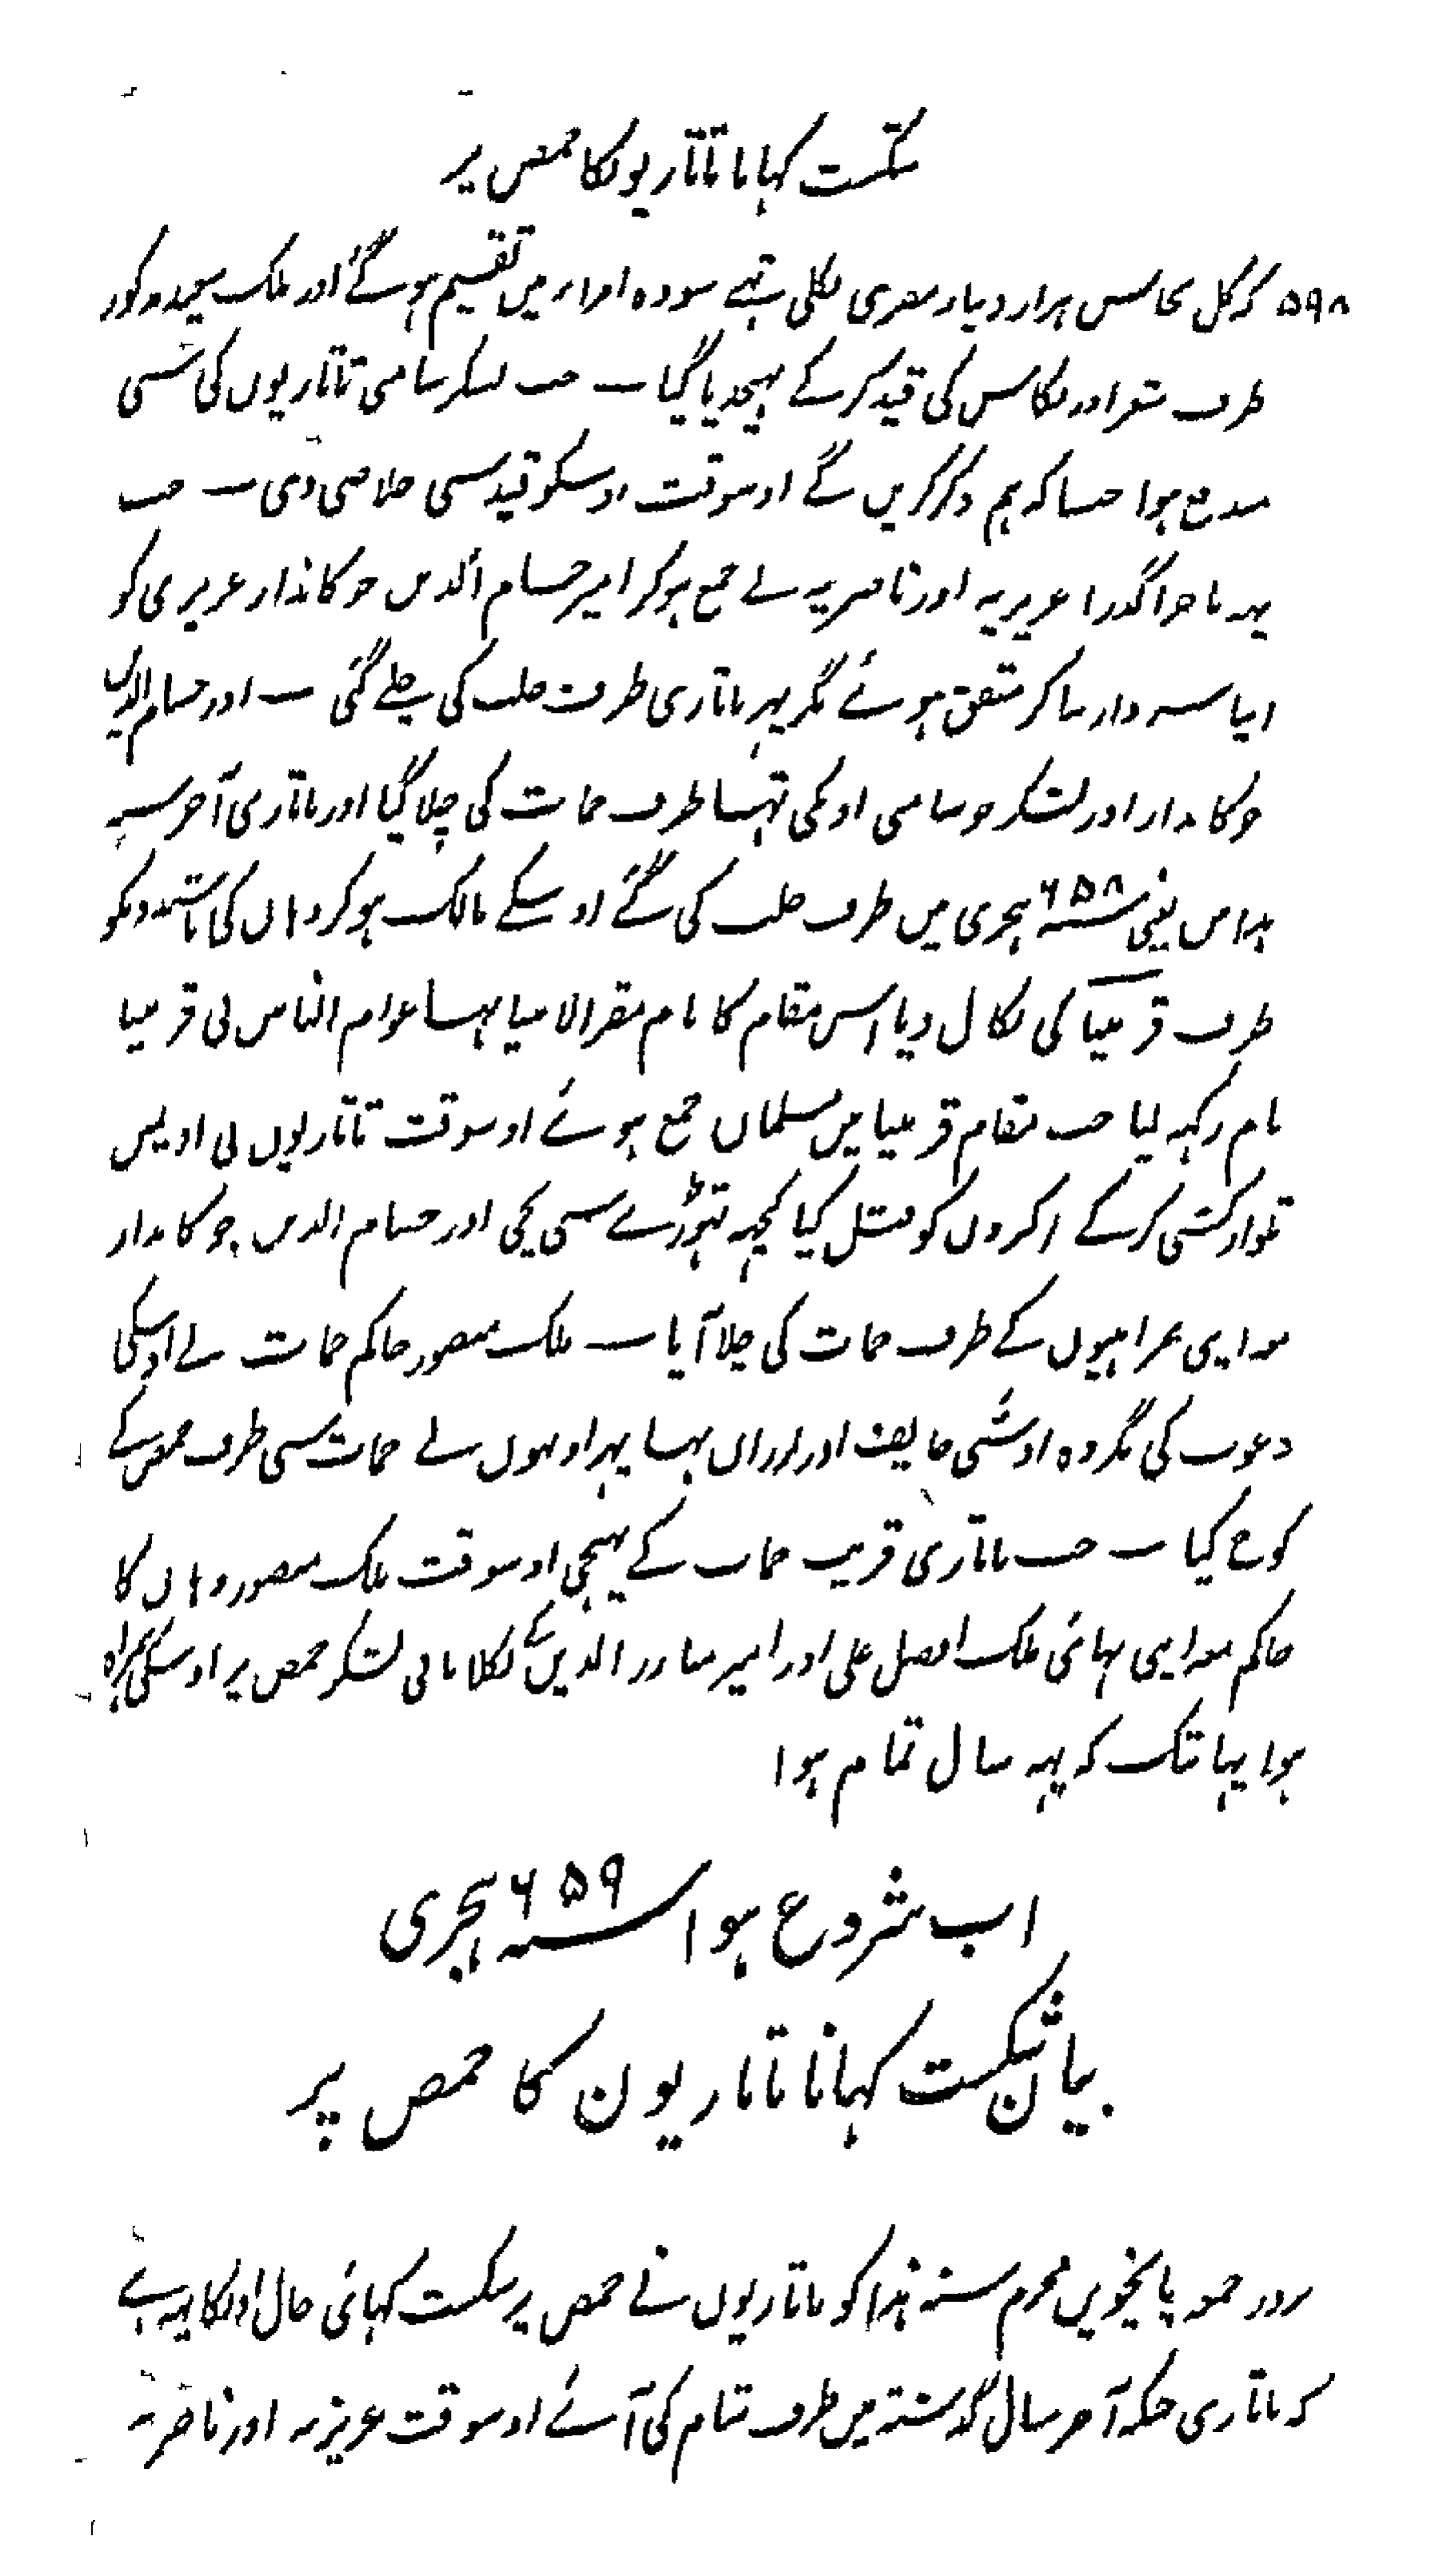 شکست کہانا تاتاریونکا حمص پر
۵۹۸ کہ کل پچاس ہزار دینار مصری نکلی تہے سو وہ امراء میں تقسیم ہو گئے اور ملک سعید مذکور
طرف شغر اور بکاس کی قید کر کے بہیجدیا گیا ــ جب لشکر شامی تاتاریوں کی سی
مندفع ہوا جیسا کہ ہم ذکر کریں گے اوسوقت اوسکو قید سی خلاصی دی ــ جب
یہہ ماجرا گذرا عزیزیہ اور ناصریہ نے جمع ہو کر امیر حسام الدین جوکاندار عزیزی کو
اپنا سردار بنا کر متفق ہوئے مگر پہر تاتاری طرف حلب کی چلے گئی ــ اور حسام الدین
جوکاندار اور لشکر جو ساتھی اوسکی تہا طرف حمات کی چلا گیا اور تاتاری آخر سنہ
ہذا میں یعنی سنہ ۶۵۸ ہجری میں طرف حلب کی گئے اوسکے مالک ہو کر وہاں کی باشندونکو
طرف قرنبیا کی نکال دیا اس مقام کا نام مقر الانبیا تہا عوام الناس نی قرنبیا
نام رکہہ لیا جب مقام قرنبیا میں مسلمان جمع ہوئے اوسوقت تاتاریوں نی اونمیں
تلوار کشی کر کے اکثروں کو قتل کیا کچہہ تہوڑے سی بچی اور حسام الدین جوکاندار
معہ اپنی ہمراہیوں کے طرف حمات کی چلا آیا ــ ملک منصور حاکم حمات نے اوسکی
دعوت کی مگر وہ اوسّی خایف اور لرزاں تہا پہر اونہوں نے حمات سی طرف حمص کے
کوچ کیا ــ جب تاتاری قریب حمات کے پہنچی اوسوقت ملک منصور وہاں کا
حاکم معہ اپنی بہائی ملک افضل علی اور امیر مبارز الدین کے نکلا باقی لشکر حمص پر اوسکی ہمراہ
ہوا یہانتک کہ یہہ سال تمام ہوا
اب شروع ہوا سنہ ۶۵۹ ہجری
بیان شکست کہانا تاتاریون کا حمص پر
روز جمعہ پانچویں محرم سنہ ہذا کو تاتاریوں نے حمص پر شکست کہائی حال اونکا یہہ ہے
کہ تاتاری جبکہ آخر سال گذشتہ میں طرف شام کی آئے اوسوقت عزیزیہ اور ناصریہ